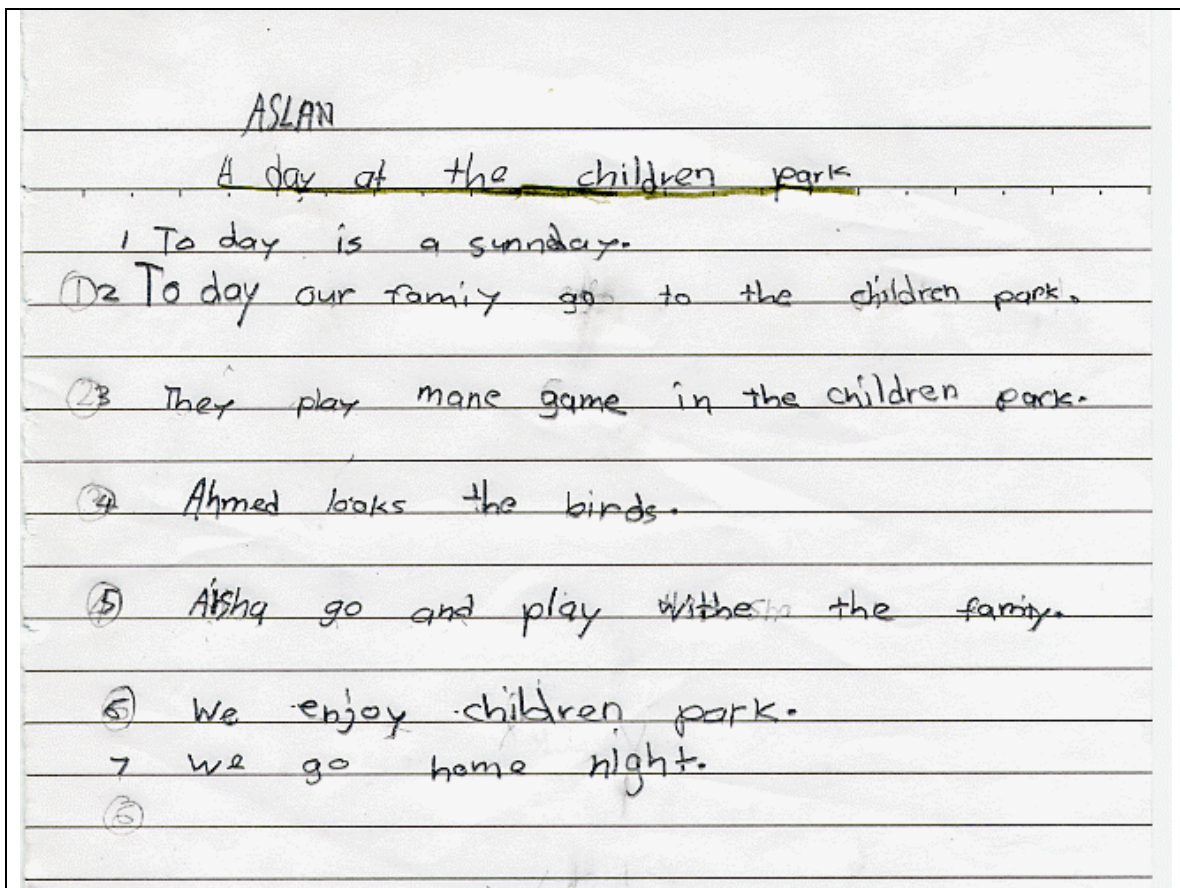 ASLAN
A day at the children park
1 To day is a sunnday.
① 2 To day our famiy go to the children park.
② 3 They play mane game in the children park.
4 Ahmed looks the birds.
⑤ Aisha go and play withe the famiy.
⑥ We enjoy children park.
7 we go home night.